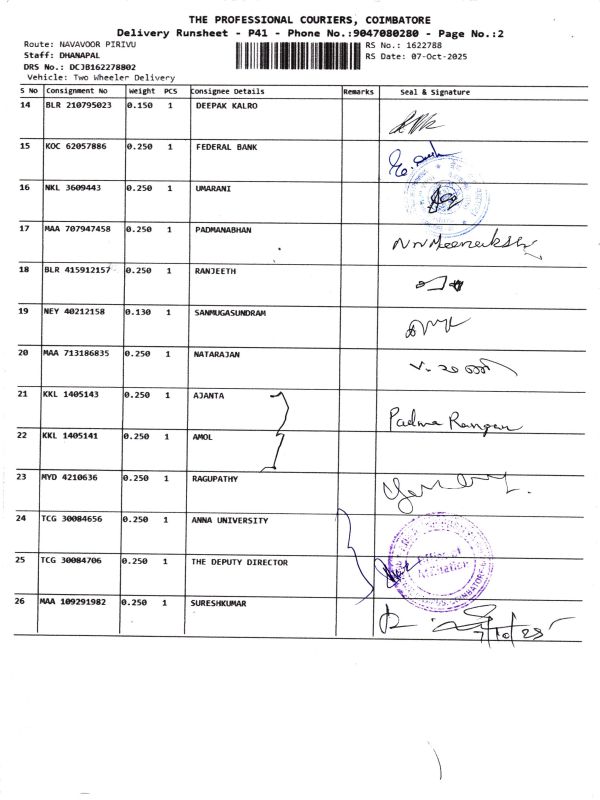 THE PROFESSIONAL COURIERS, COIMBATORE
Delivery Runsheet - P41 - Phone No.:9047080280 - Page No.:2
Route: NAVAVOOR PIRIVU
RS No.: 1622788
Staff: DHANAPAL
RS Date: 07-Oct-2025
DRS No.: DCJB162278802
Vehicle: Two Wheeler Delivery
S No Consignment No Weight PCS Consignee Details Remarks Seal & Signature
14 BLR 210795023 0.150 1 DEEPAK KALRO
15 KOC 62057886 0.250 1 FEDERAL BANK
16 NKL 3609443 0.250 1 UMARANI
17 MAA 707947458 0.250 1 PADMANABHAN
18 BLR 415912157 0.250 1 RANJEETH
19 NEY 40212158 0.130 1 SANMUGASUNDRAM
20 MAA 713186835 0.250 1 NATARAJAN
21 KKL 1405143 0.250 1 AJANTA
Padma Rangan
22 KKL 1405141 0.250 1 AMOL
23 MYD 4210636 0.250 1 RAGUPATHY
24 TCG 30084656 0.250 1 ANNA UNIVERSITY
25 TCG 30084706 0.250 1 THE DEPUTY DIRECTOR
26 MAA 109291982 0.250 1 SURESHKUMAR
7/10/25